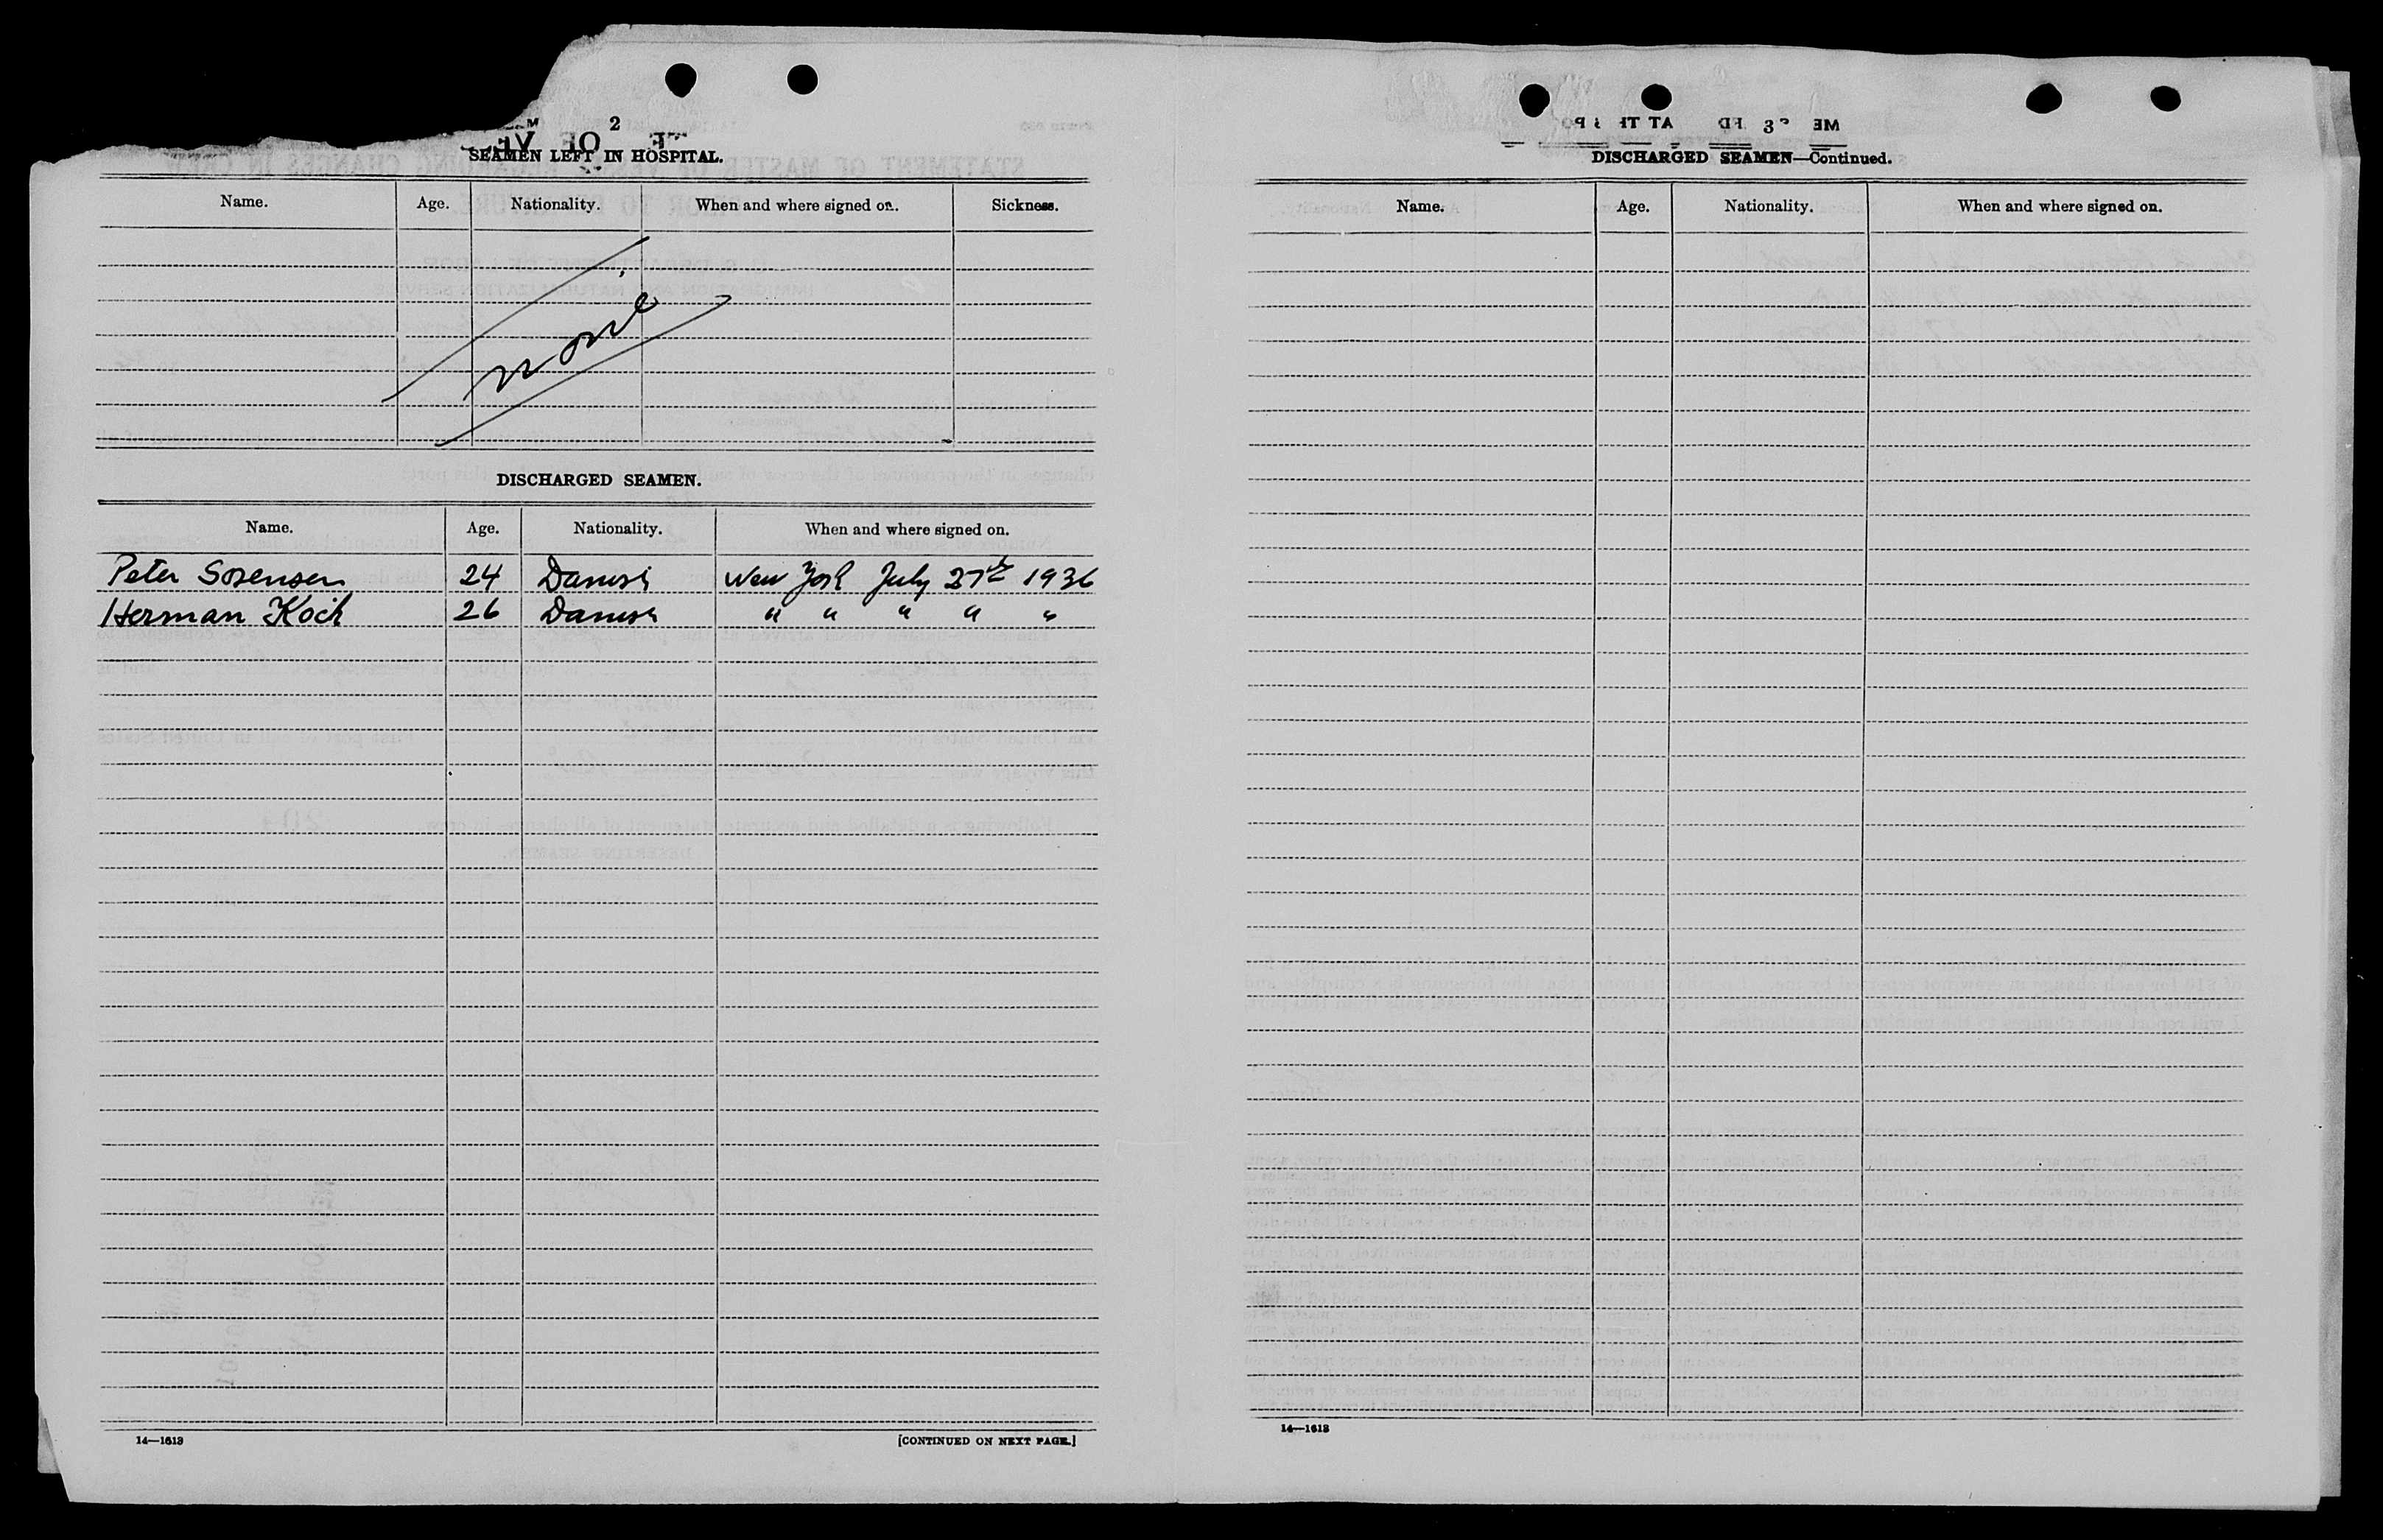 2
SEAMEN LEFT IN HOSPITAL.
Name. Age. Nationality. When and where signed on. Sickness.
none
DISCHARGED SEAMEN.
Name. Age. Nationality. When and where signed on.
Peter Sorensen 24 Danish New York July 27th 1936
Herman Koch 26 Danish " " " " "
14—1613 [CONTINUED ON NEXT PAGE.]
3
DISCHARGED SEAMEN—Continued.
Name. Age. Nationality. When and where signed on.
14—1613